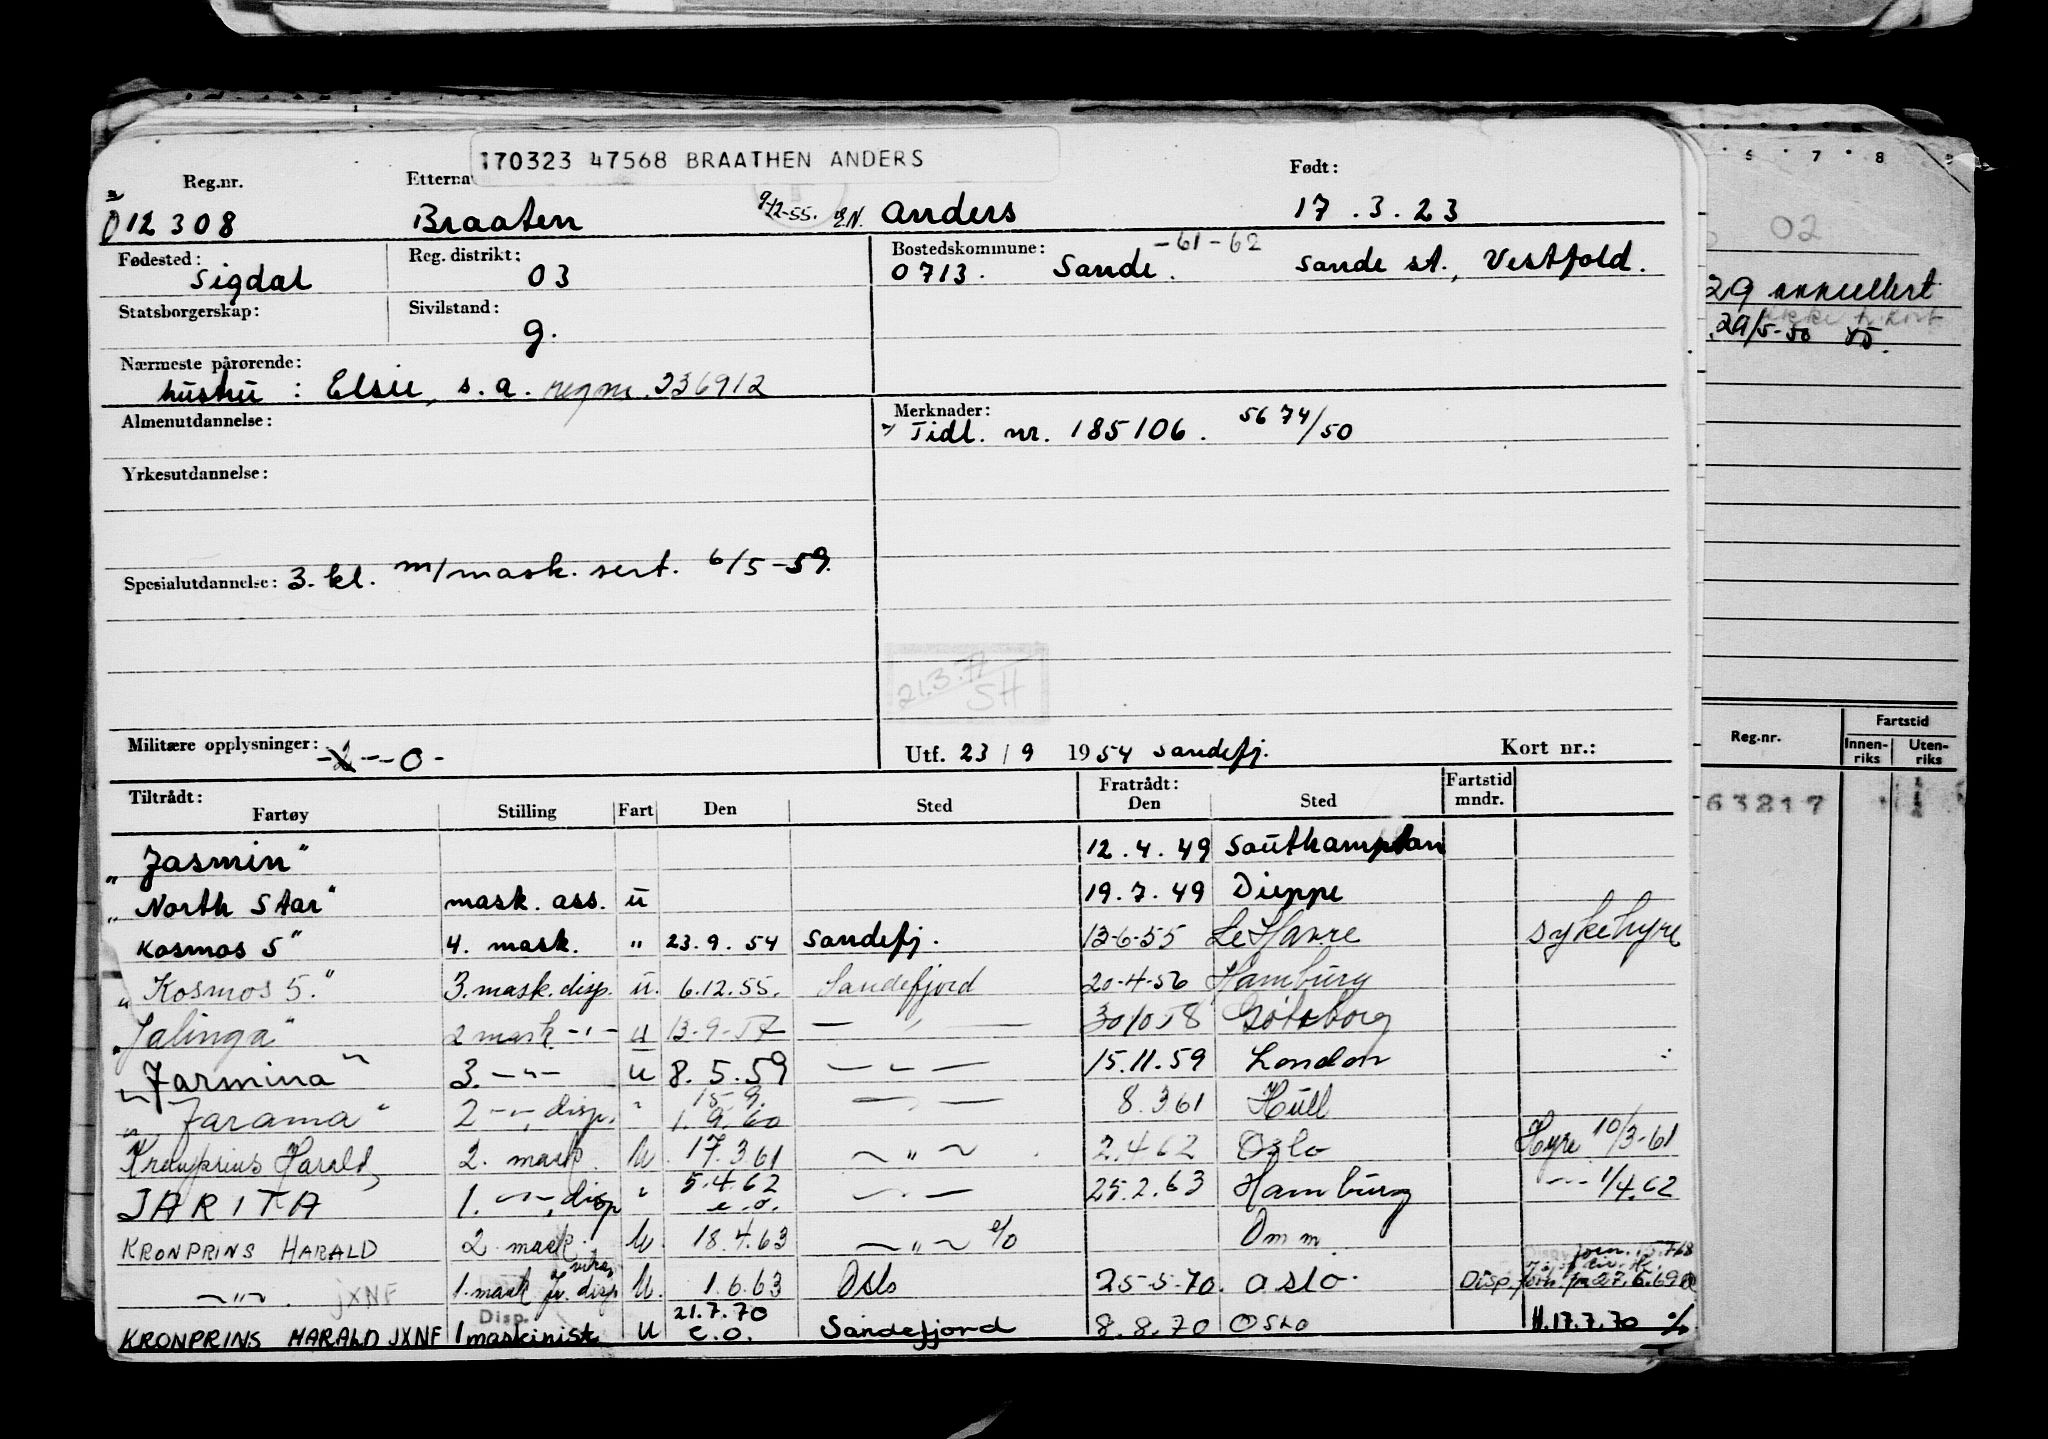 170323 47568 BRAATHEN ANDERS
Reg.nr. Etterna Født:
012308 Braaten 9/12-55. E.N. Anders 17.3.23
Fødested: Sigdal Reg. distrikt: 03 Bostedskommune: 0713. Sande. -61-62 Sande st., Vestfold.
Statsborgerskap: Sivilstand: g.
Nærmeste pårørende:
hustru : Elsie, s.a. regnr. 236912
Almenutdannelse: Merknader:
Tidl. nr. 185106. 5674/50
Yrkesutdannelse:
Spesialutdannelse: 3. kl. m/mask. sert. 6/5-59.
21.3.77
SH
Militære opplysninger: -0- Utf. 23/9 1954 Sandefj. Kort nr.:
Tiltrådt: Fratrådt: Fartstid
Fartøy Stilling Fart Den Sted Den Sted mndr.
"Jasmin" 12.4.49 Southampton
"North Star" mask. ass. u 19.7.49 Dieppe
"Kosmos 5" 4. mask. " 23.9.54 Sandefj. 13-6-55 Le Havre sykehyre
"Kosmos 5." 3. mask. disp. u. 6.12.55. Sandefjord 20-4-56 Hamburg
"Jalinga" 2 mask -"- u 13-9-57 — " — 30/10 58 Gøteborg
"Jarmina" 3. -"- u 8.5.59 — " — 15.11.59 London
"Jarama" 2 -"- disp. " 15.9. 1.9.60 — " — 8.3 61 Hull
Kronprins Harald 2. mask. u. 17.3 61 — " — 2.4 62 Oslo Hyre 10/3-61
JARITA 1. -"-, disp " 5.4.62 e.o. — " — 25.2.63 Hamburg -"- 1/4.62
KRONPRINS HARALD 2 mask. u. 18.4.63 — " — e/o Omm
— " — . JXNF 1. mask vikar disp u. 1.6.63 Oslo 25-5-70. Oslo. Disp. forn. fra 27.6.69
KRONPRINS HARALD JXNF Disp. 1 maskinist u 21.7.70 E.O. Sandefjord 8.8.70 Oslo H.17.7.70 %
6 7 8
02
29 annullert
29/5-50
Reg.nr. Fartstid
Innenriks Utenriks
63217